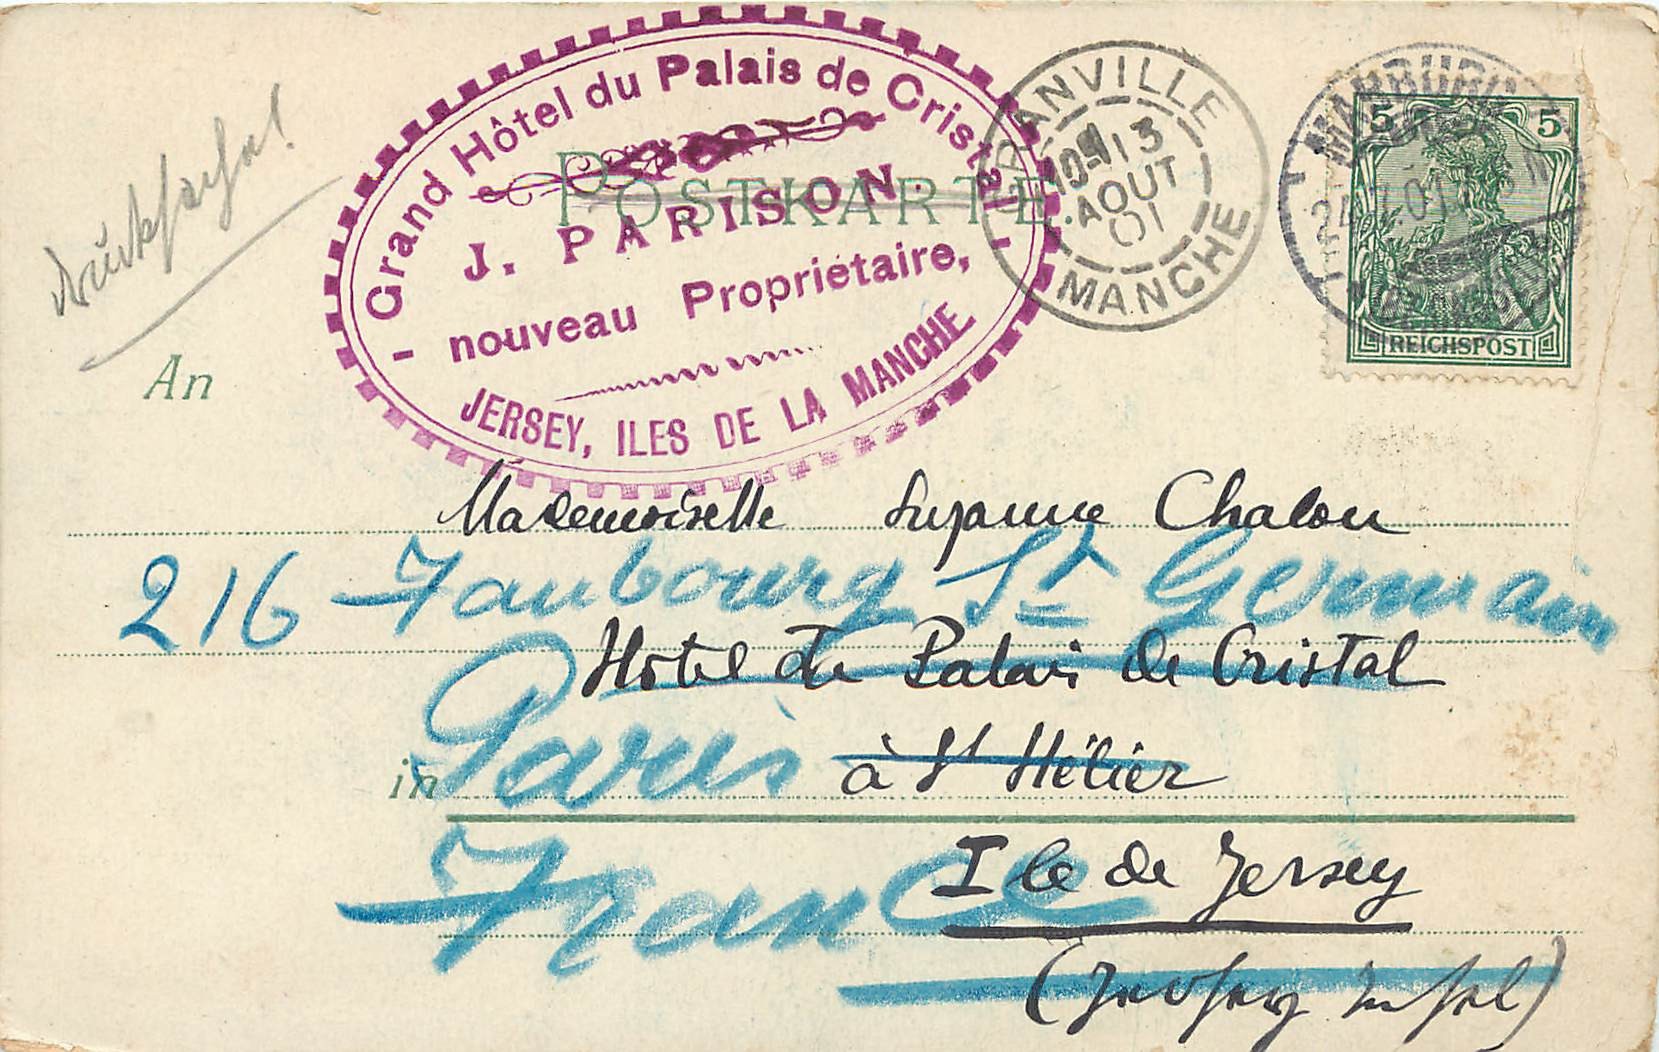 Drucksache!
Grand Hôtel du Palais de Cristal
POSTKARTE.
J. PARISON.
nouveau Propriétaire,
JERSEY, ILES DE LA MANCHE
GRANVILLE
13
AOUT
01
MANCHE
MARBURG
5 5
REICHSPOST
An
Mademoiselle Suzanne Chalon
216 Faubourg St Germain
Hotel du Palais de Cristal
Paris
à St Hélier
in
France
Ile de Jersey
(Jersey Insel)